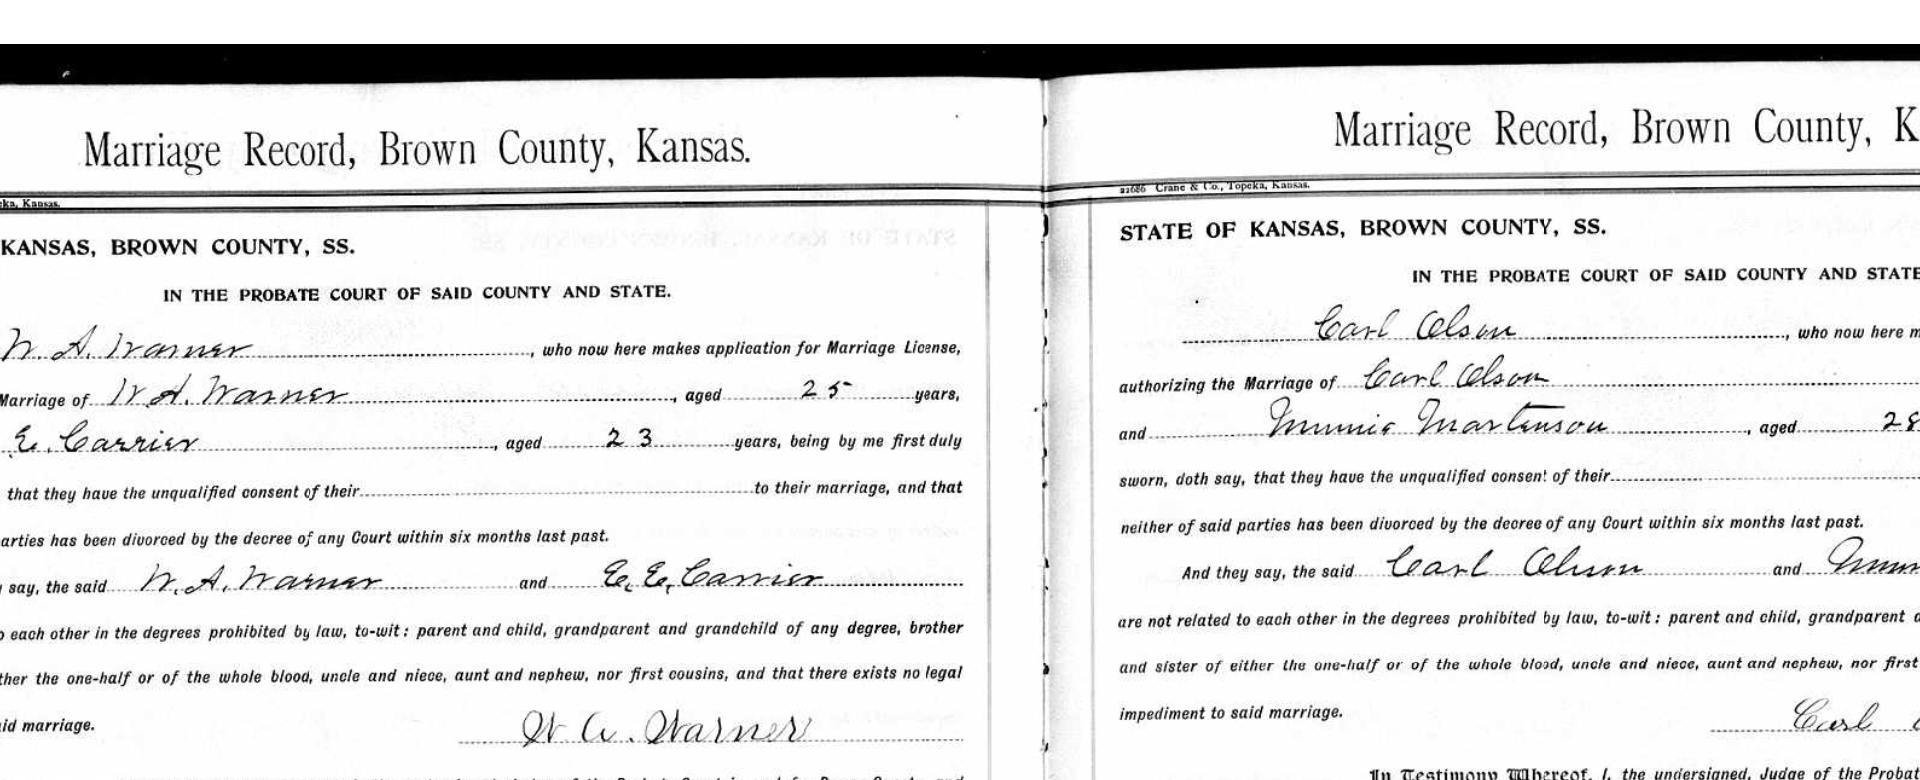 Marriage Record, Brown County, Kansas.
ka, Kansas.
KANSAS, BROWN COUNTY, SS.
IN THE PROBATE COURT OF SAID COUNTY AND STATE.
W. A. Warner, who now here makes application for Marriage License,
Marriage of W. A. Warner, aged 25 years,
E. Carrier, aged 23 years, being by me first duly
that they have the unqualified consent of their to their marriage, and that
arties has been divorced by the decree of any Court within six months last past.
say, the said W. A. Warner and E. E. Carrier
o each other in the degrees prohibited by law, to-wit: parent and child, grandparent and grandchild of any degree, brother
ther the one-half or of the whole blood, uncle and niece, aunt and nephew, nor first cousins, and that there exists no legal
id marriage.
W A. Warner
Marriage Record, Brown County, K
22686 Crane & Co., Topeka, Kansas.
STATE OF KANSAS, BROWN COUNTY, SS.
IN THE PROBATE COURT OF SAID COUNTY AND STATE
Carl Olson, who now here m
authorizing the Marriage of Carl Olson
and Minnie Martenson, aged 28
sworn, doth say, that they have the unqualified consent of their
neither of said parties has been divorced by the decree of any Court within six months last past.
And they say, the said Carl Olson and Minn
are not related to each other in the degrees prohibited by law, to-wit: parent and child, grandparent a
and sister of either the one-half or of the whole blood, uncle and niece, aunt and nephew, nor first
impediment to said marriage.
Carl
In Testimony Whereof, I, the undersigned, Judge of the Probat